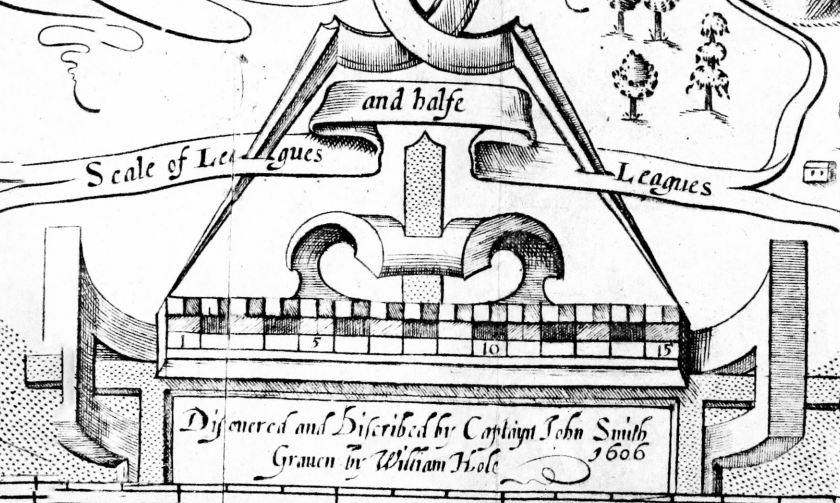 and halfe
Scale of Leagues
Leagues
1 5 10 15
Discouered and Discribed by Captayn John Smith
1606
Grauen by William Hole